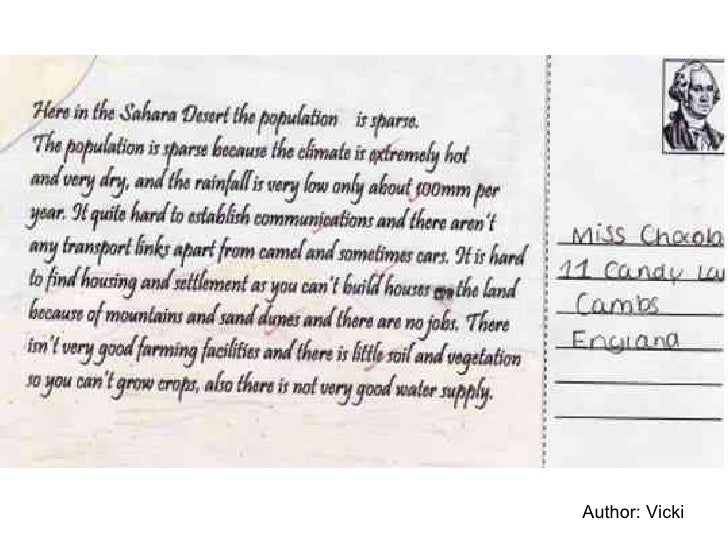 Here in the Sahara Desert the population is sparse.
The population is sparse because the climate is extremely hot
and very dry, and the rainfall is very low only about 100mm per
year. It quite hard to establish communications and there aren't
any transport links apart from camel and sometimes cars. It is hard
to find housing and settlement as you can't build houses on the land
because of mountains and sand dunes and there are no jobs. There
isn't very good farming facilities and there is little soil and vegetation
so you can't grow crops, also there is not very good water supply.
Miss
11 Candy
Cambs
England
Author: Vicki